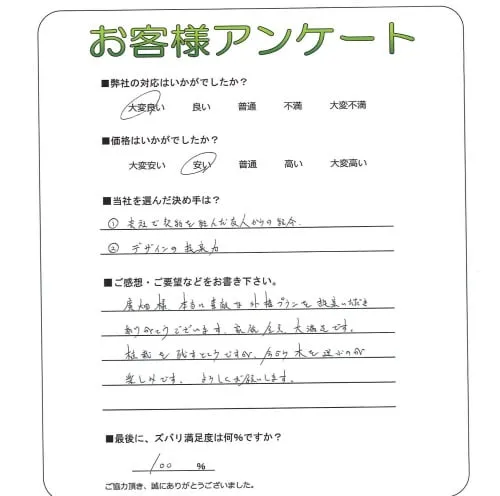 お客様アンケート
■弊社の対応はいかがでしたか？
大変良い 良い 普通 不満 大変不満
■価格はいかがでしたか？
大変安い 安い 普通 高い 大変高い
■当社を選んだ決め手は？
① 貴社で契約を結んだ友人からの紹介
② デザインの提案力
■ご感想・ご要望などをお書き下さい。
廣畑様 本当に素敵な外構プランを提案いただき
ありがとうございます。家族全員 大満足です。
植栽を残すところですが、今から木を選ぶのが
楽しみです。よろしくお願いします。
■最後に、ズバリ満足度は何％ですか？
100 ％
ご協力頂き、誠にありがとうございました。